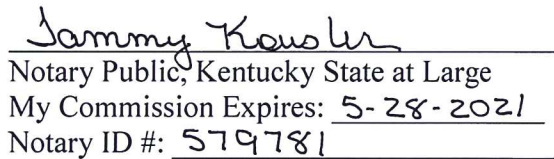 Tammy
Notary Public, Kentucky State at Large
My Commission Expires: 5-28-2021
Notary ID #: 579781